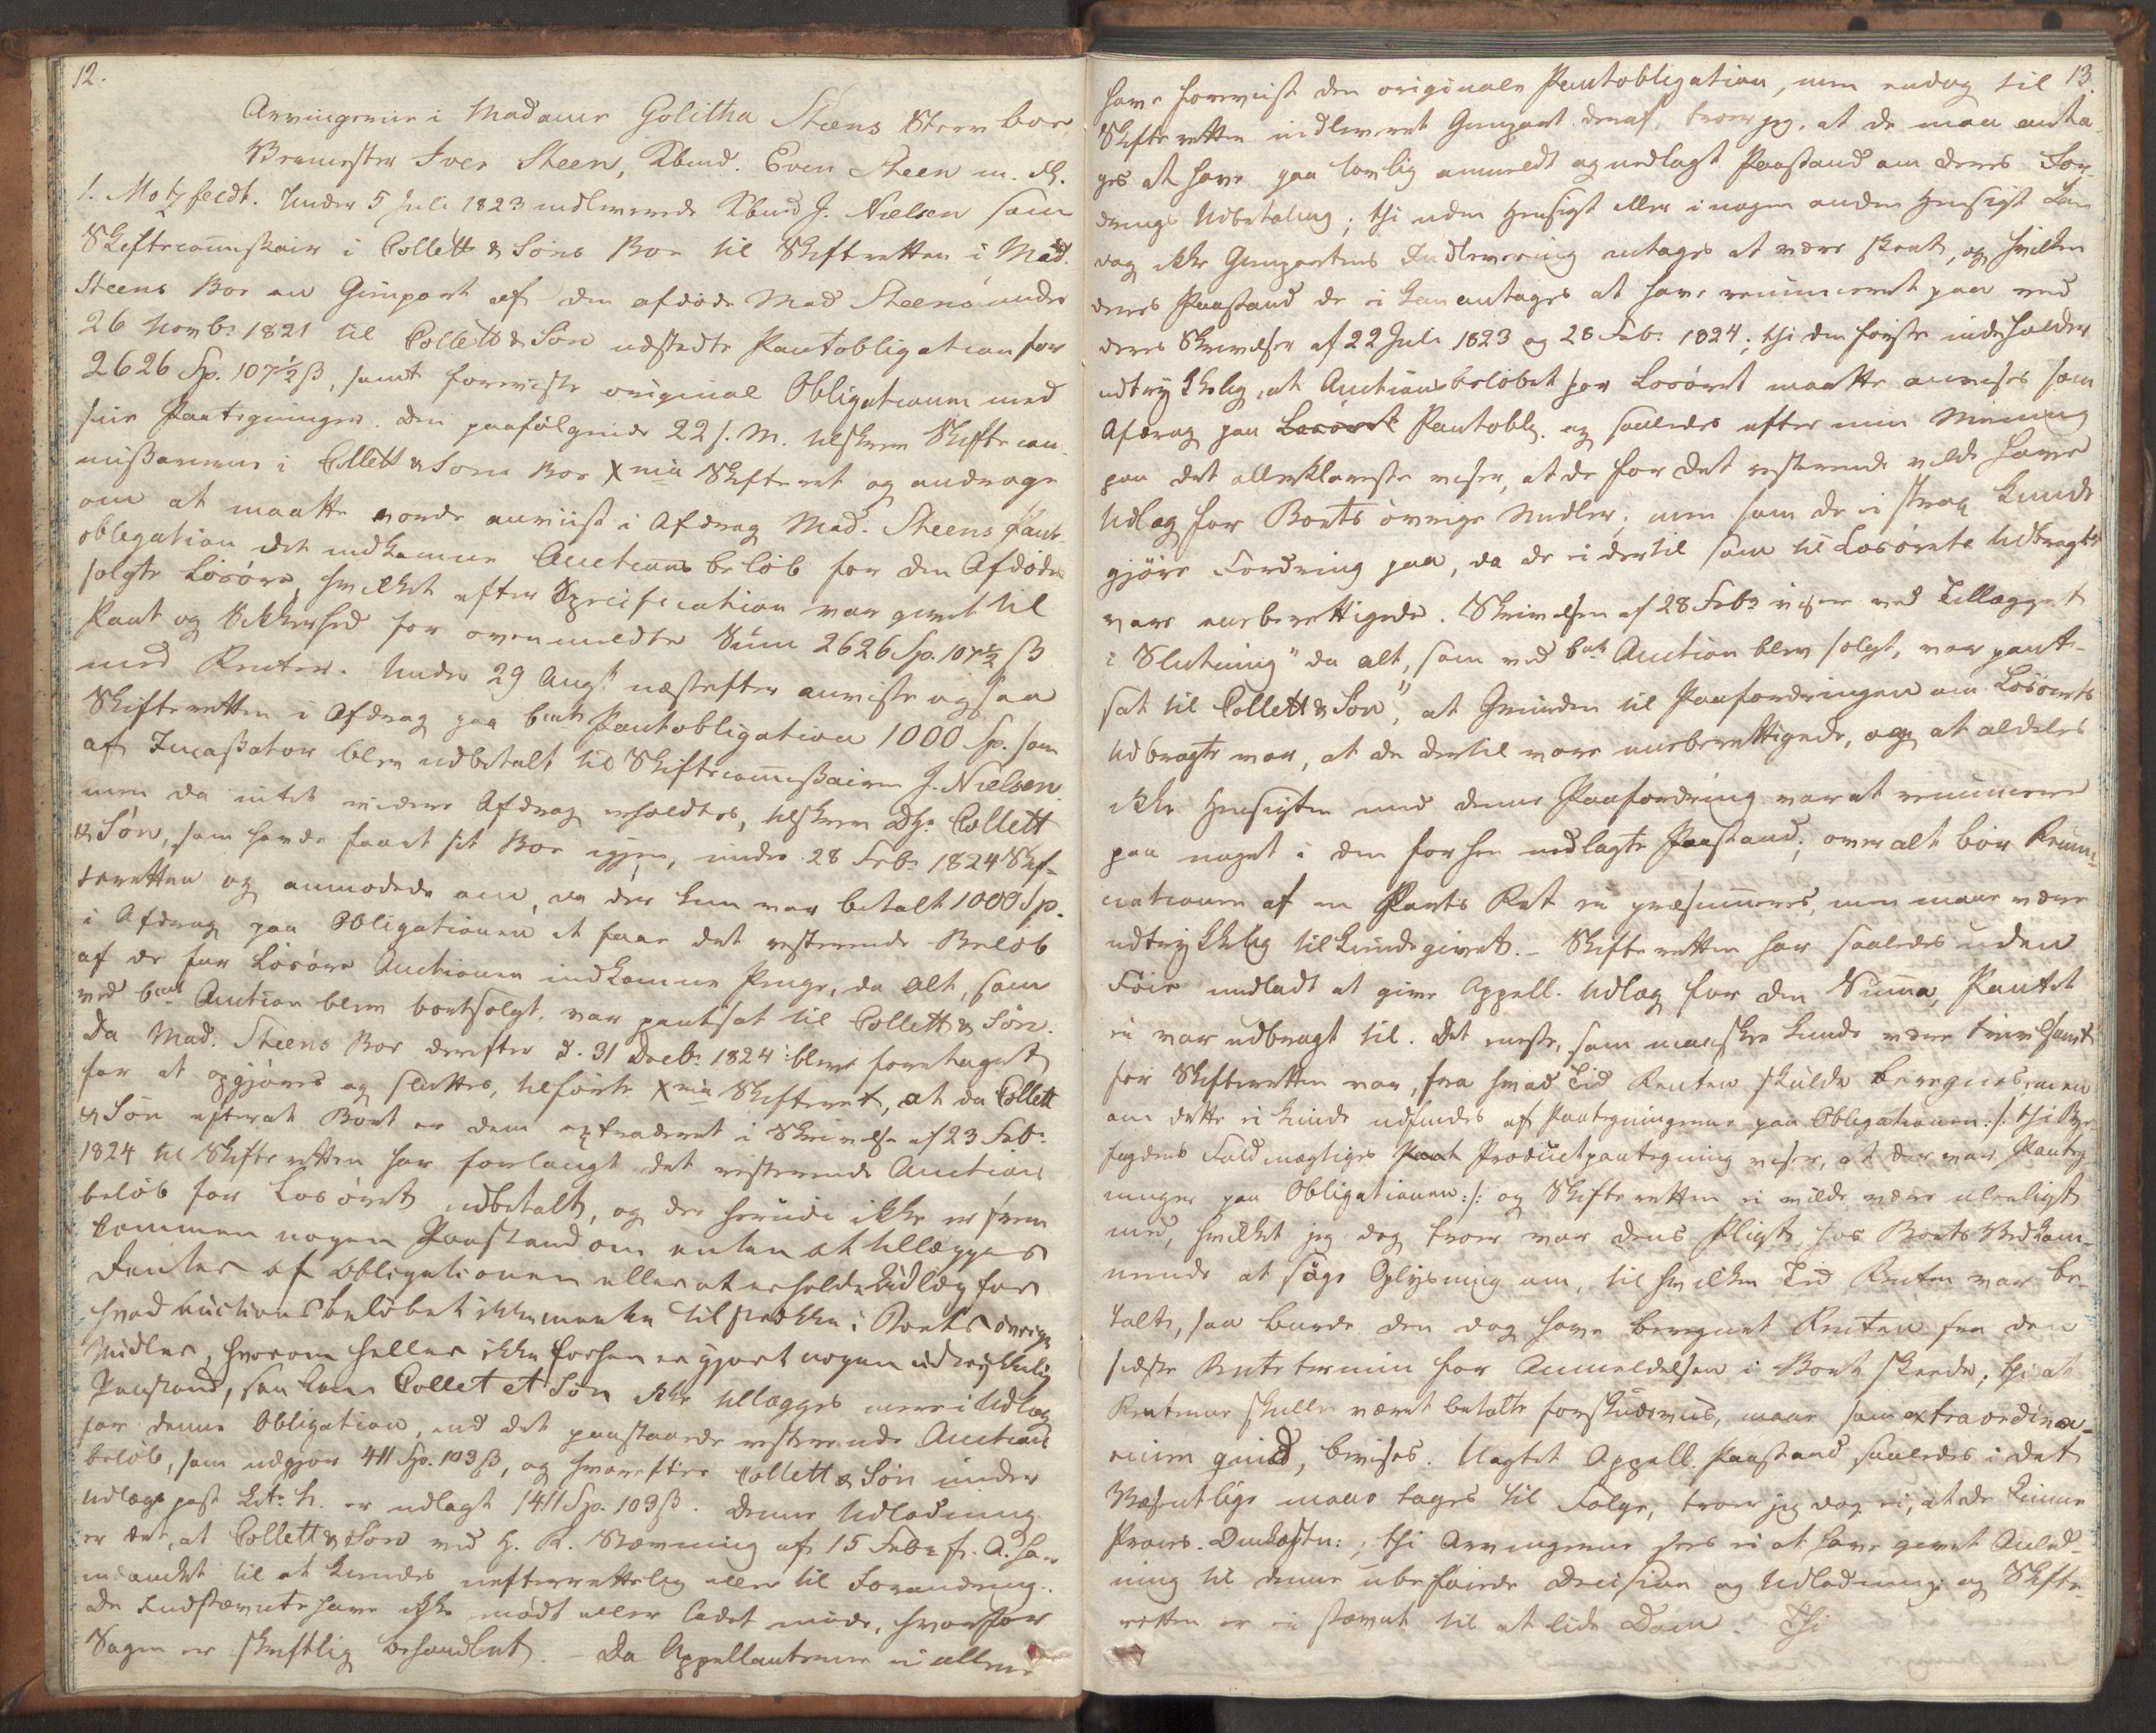 12.
Arvingerne i Madame Golitha Steens Sterv boe,
Bramester Iver Steen, Kbmd. Even Steen m. fl.
1. Motzfeldt. Under 5 Juli 1823 indleverede Kbmd J. Nielsen som
Skiftecommissair i Collett & Søns Boe til Skifteretten i Mad.
Steens Boe en Gienpart af den afdøde Mad Steens under
26 Novbr 1821 til Collett & Søn udstedte Pantobligation for
2626 Sp. 107½ ß, samt foreviste original Obligationen med
sine Paategninger. Den paafølgende 22 s. M. tilskrev Skiftecom-
missairerne i Collett & Søns Boe Xnia Skifteret og androge
om at maatte vorde anviist i Afdrag Mad. Steens Pant-
obligation det indkomne Auctions beløb for den Afdødes
solgte Løsøre, hvilket efter Specification var givet til
Pant og Sikkerhed for ovenmeldte Sum 2626 Sp. 107½ ß
med Renter. Under 29 Augst næstefter anviste ogsaa
Skifteretten i Afdrag paa bmte Pantobligation 1000 Sp. som
af Incassator blev udbetalt til Skiftecommissairen J. Nielsen,
men da intet videre Afdrag erholdtes, tilskrev Collett
& Søn, som havde faaet sit Boe igjen, under 28 Febr 1824 Skif-
teretten og anmodede om, da der kun var betalt 1000 Sp.
i Afdrag paa Obligationen at faae det resterende Beløb
af de for Løsøre Auctionen indkomne Penge, da alt, som
ved bmt Auction blev bortsolgt, var pantsat til Collett & Søn.
Da Mad. Steens Boe derefter d. 31 Decbr 1824 blev foretaget
for at opgjøres og sluttes, tilførte Xnia Skifteret, at da Collett
& Søn efterat Boet er dem extraderet i Skrivelse af 23 Febr
1824 til Skifteretten har forlangt det resterende Auctions
beløb for Løsøret udbetalt, og der herudi ikke er frem
kommen nogen Paastand om enten at tillægges
Renter af Obligationen eller at erholde Udlæg for
hvad Auctionsbeløbet ikke maatte tilstrække i Boets øvrige
Midler, hvorom heller ikke forhen er gjort nogen udtrykkelig
Paastand, saa kan Collet et Søn ikke tillægges mere i Udlæg
for denne Obligation, end det paastaaede resterende Auctions
beløb, som udgjør 411 Sp. 103 ß, og hvorefter Collett & Søn under
Udlægs post Litr h. er udlagt 1411 Sp. 103 ß. Denne Udlodning
er det, at Collett & Søn ved H. R. Stævning af 15 Febr f. A. har
indanket til at kiendes uefterrettelig eller til Forandring.
De Indstævnte have ikke mødt eller ladet møde, hvorfor
Sagen er skriftlig behandlet. – Da Appellanterne ei allene
13.
have foreviist den originale Pantobligation, men endog til
Skifteretten indleveret Gienpart deraf, troer jeg, at de maa anta-
ges at have paa lovlig anmeldt og nedlagt Paastand om deres For-
drings Udbetaling; thi uden Hensigt eller i nogen anden Hensigt kan
dog ikke Gienpartens Indlevering antages at være skeet, og hvilken
deres Paastand de ei kan antages at have renunceret paa ved
deres Skrivelser af 22 Juli 1823 og 28 Feb. 1824; thi den første indeholder
udtrykkelig, at Auctionsbeløbet for Løsøret maatte anvises som
Afdrag paa Løsøret Pantobl. og saaledes efter min Mening
paa det allerklareste viser, at de for det resterende vilde have
Udlæg for Boets øvrige Midler; men som de ei strax kunde
gjøre Fordring paa, da de ei dertil som til Løsørets Udbragte
vare eneberettigede. Skrivelsen af 28 Febr viser ved Tillægget
i Slutning "da alt, som ved bmte Auction blev solgt, var pant-
sat til Collett & Søn", at Grunden til Paafordringen om Løsørets
Udbragte var, at de dertil vare eneberettigede, og at aldeles
ikke Hensigten med denne Paafordring var at renuncere
paa noget i den forhen nedlagte Paastand; overalt bør Renun-
ciationen af en Parts Ret ei præsumeres, men maae være
udtrykkelig tilkiendegivet. – Skifteretten har saaledes uden
Føie undladt at give Appell. Udlæg for den Summa, Pantet
ei var udbragt til. Det eneste, som maaskee kunde være tvivlsomt
for Skifteretten var, fra hvad Tid Renten skulde beregnes, men
om dette ei kunde udfindes af Paategningerne paa Obligationen :/: thi By
fogdens Fuldmægtiges Paat Productpaategning viser, at der var Paateg-
ninger paa Obligationen :/: og Skifteretten ei vilde være uleiliget
med, hvilket jeg dog troer var dens Pligt, hos Boets Vedkom-
mende at søge Oplysning om, til hvilken Tid Renten var be-
talt, saa burde den dog have beregnet Renten fra den
sidste Rentetermin for Anmeldelsen i Boet skeede; thi at
Renterne skulle været betalte forskudsviis, maae som extraordina-
rium quid, bevises. Uagtet Appell. Paastand saaledes i det
Væsentlige maae tages til Følge, troer jeg dog ei, at de kunne
Proces. Omkostn:; thi Arvingerne sees ei at have givet Anled-
ning til denne ubeføiede Decision og Udlodning; og Skifte
retten er ei stævnt til at lide Dom. Thi